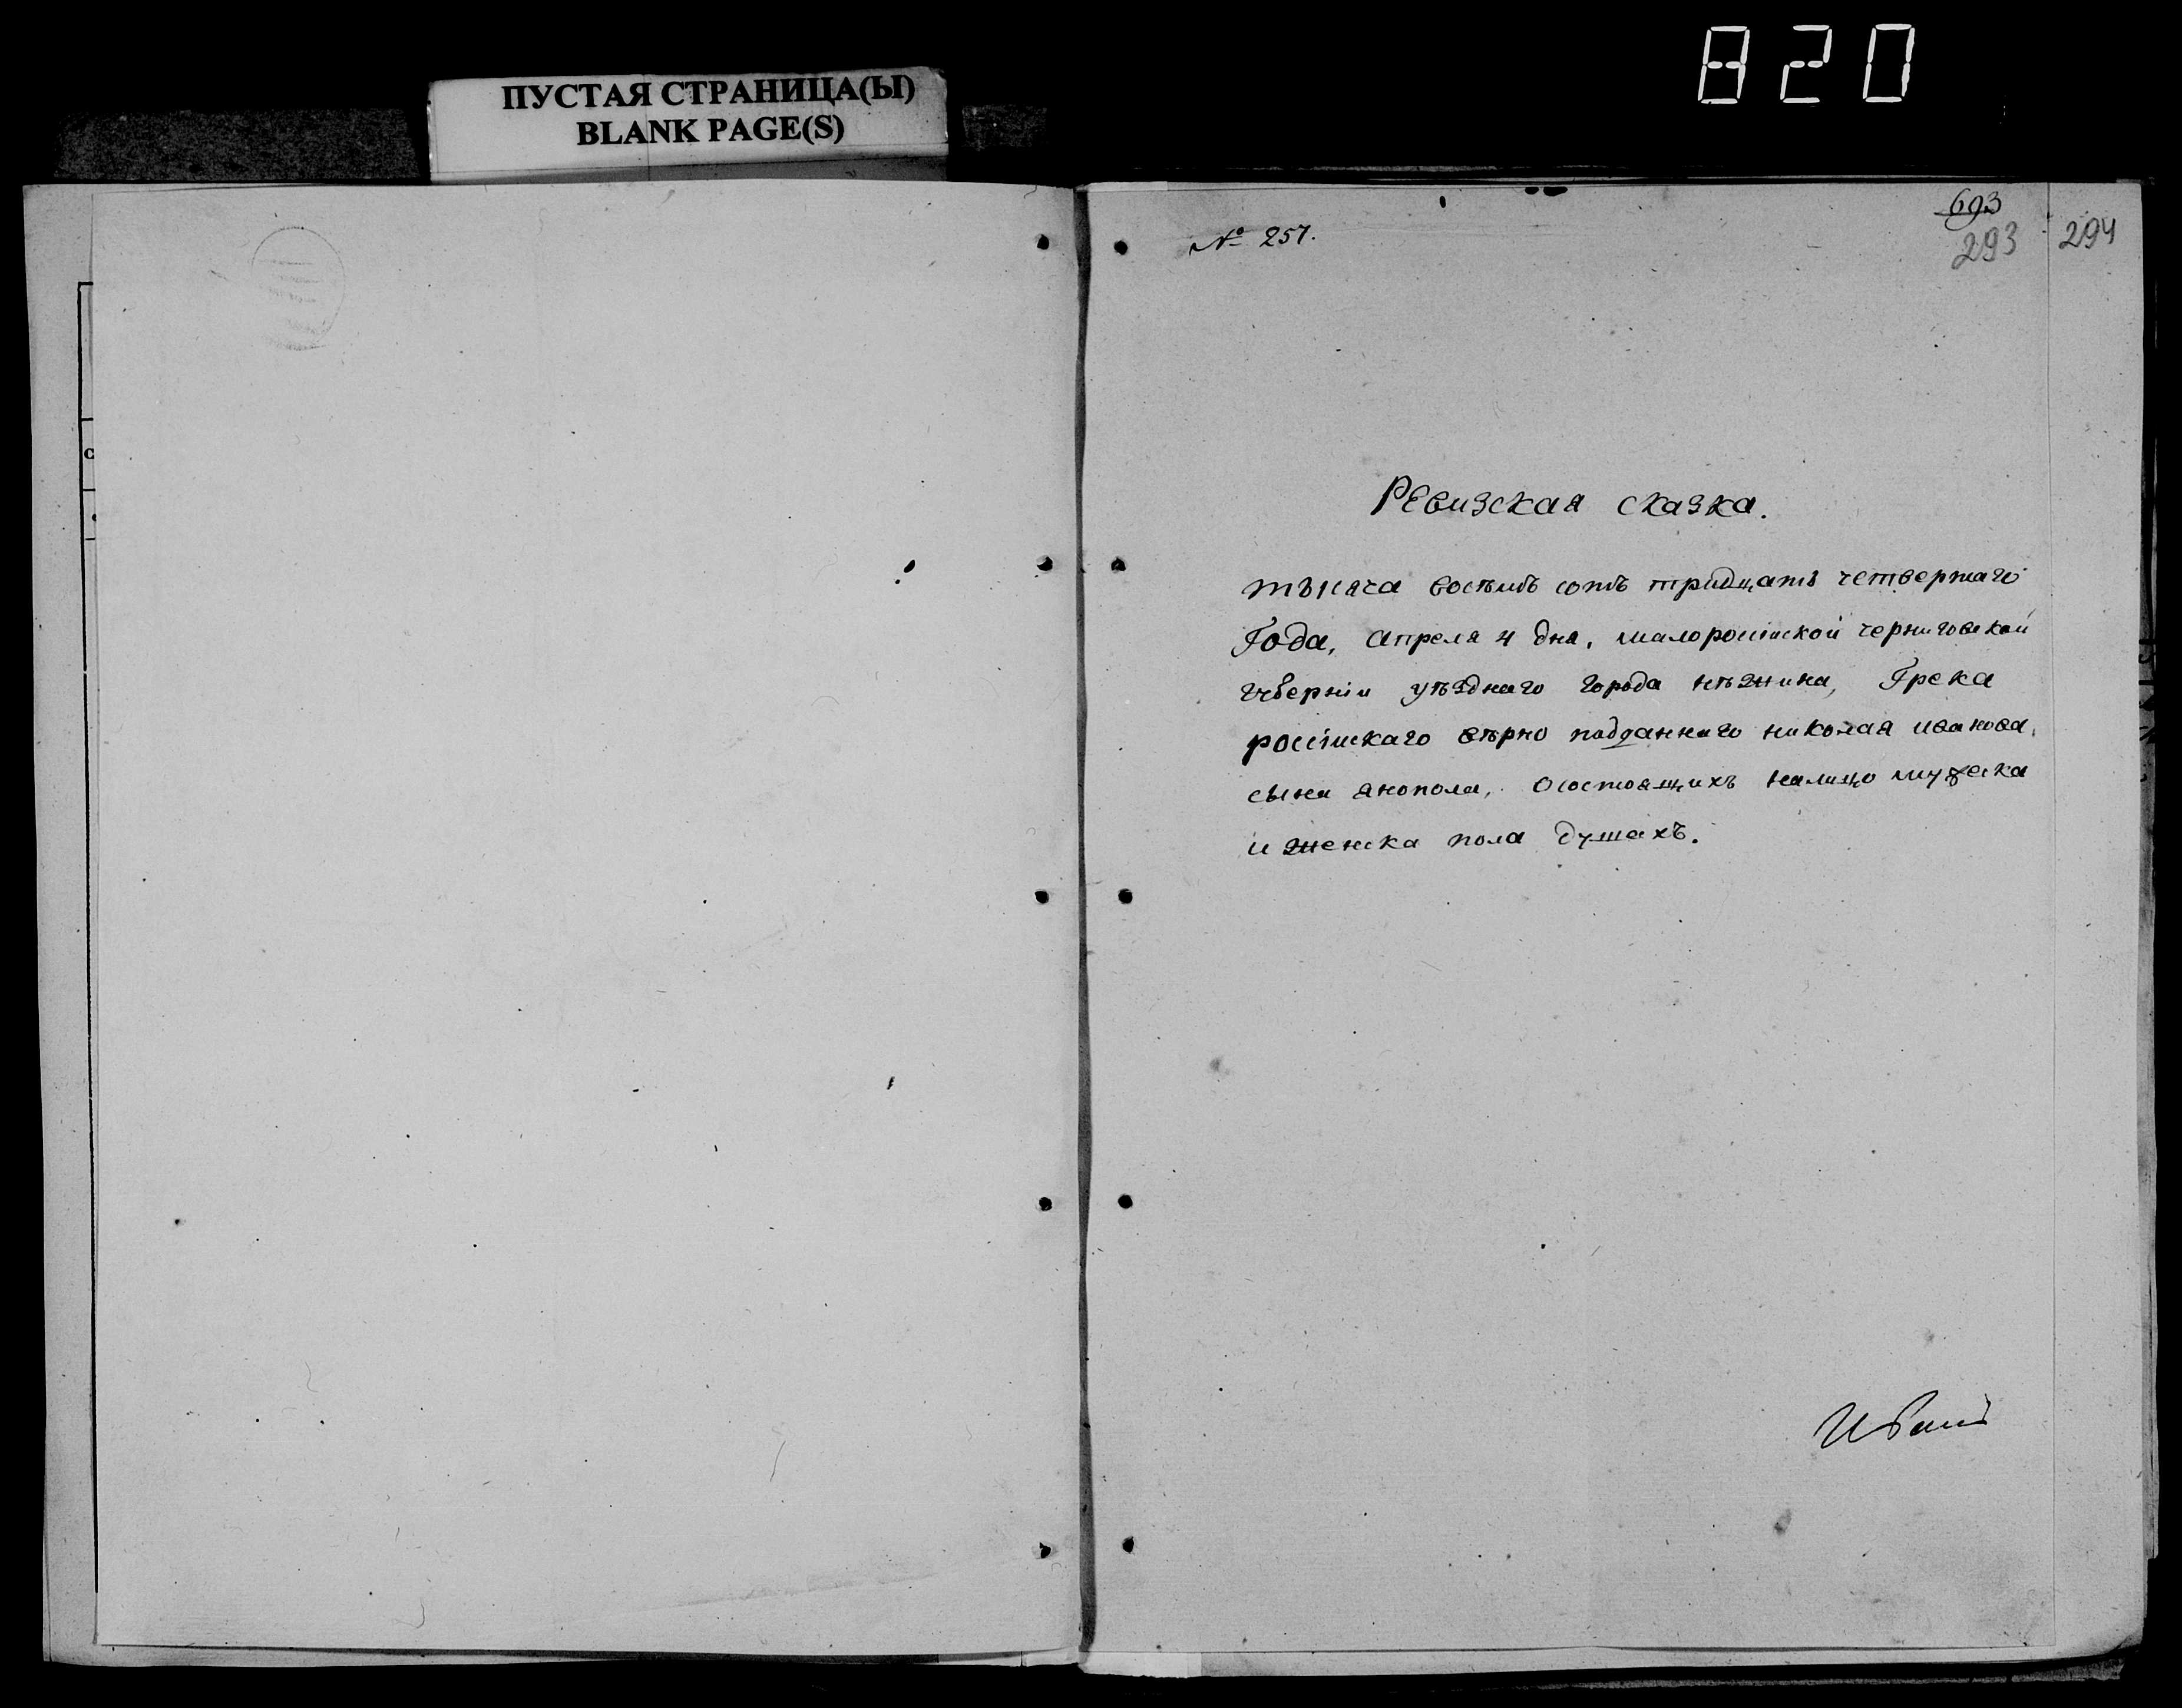 820
ПУСТАЯ СТРАНИЦА(Ы)
BLANK PAGE(S)
693
293
294
№ 257.
Ревизская сказка.
тысяча восѣмъ сотъ тридцать четвертаго
Года, апреля 4 дня, малоросiиской черниговской
губернiи уѣзднаго города нѣжина, Грека
росiискаго вѣрно подданнаго николая иванова
сына янопола, осостоящихъ налицо мужеска
и женска пола душахъ.